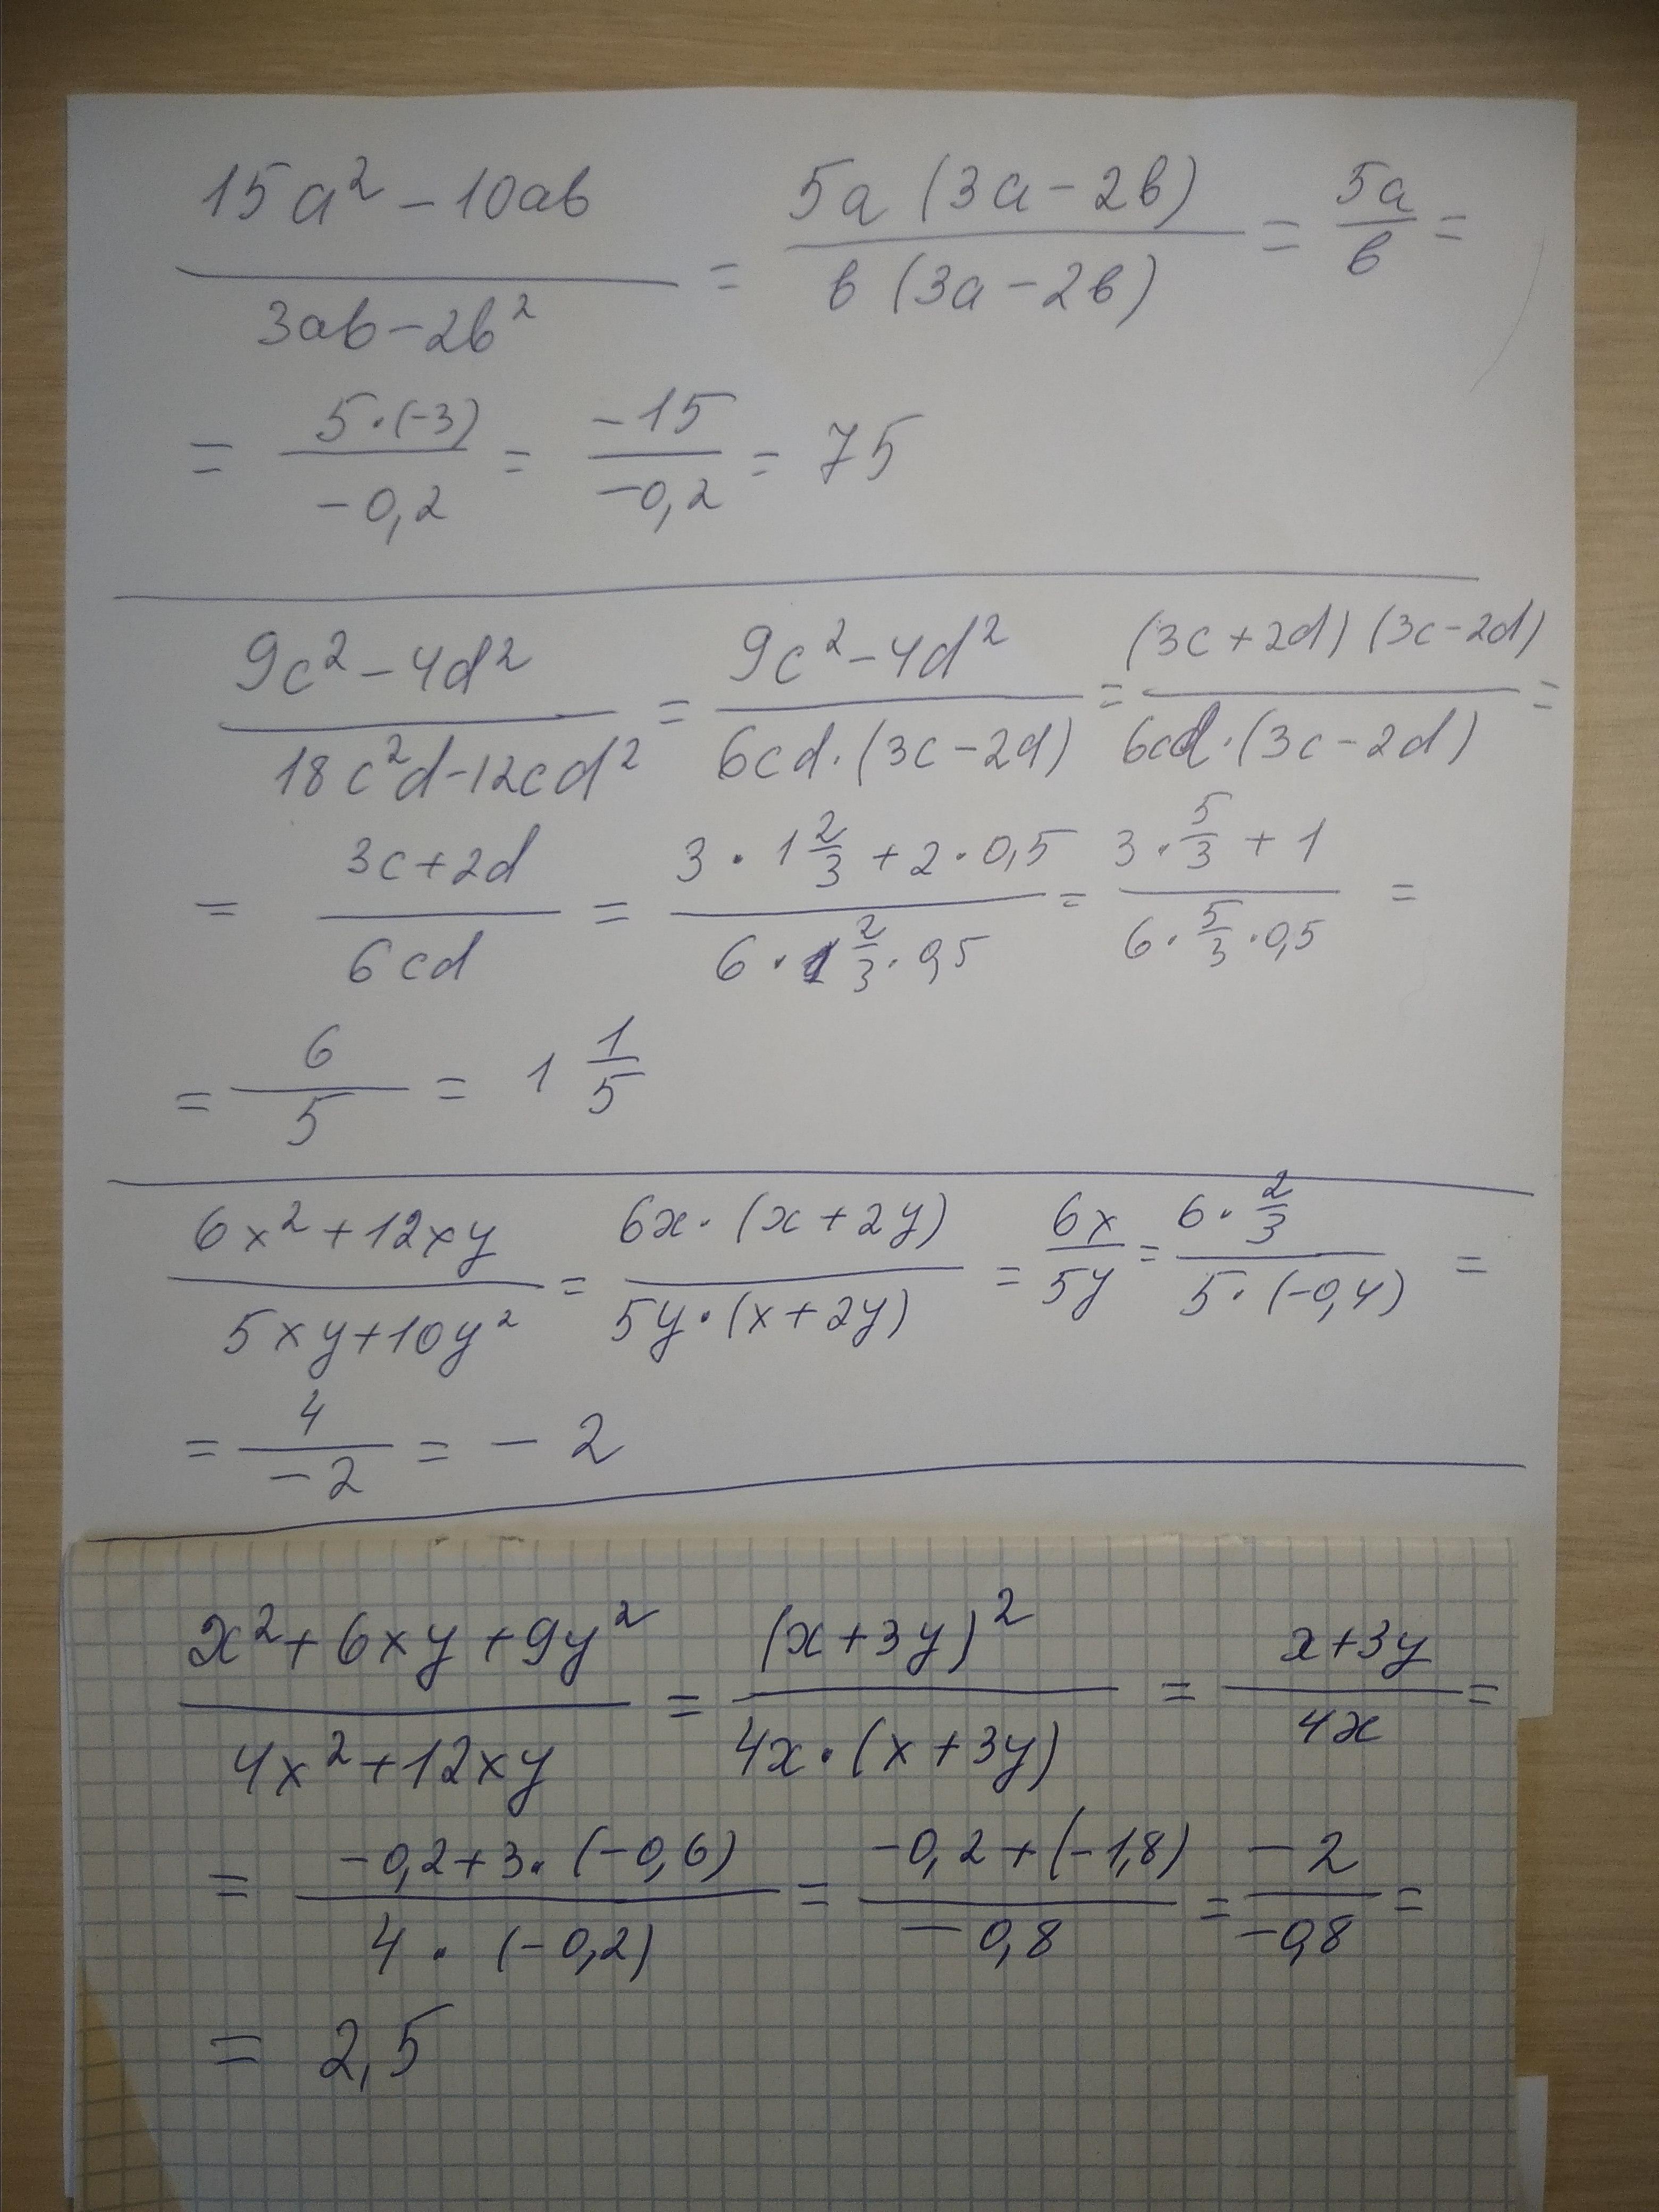 15a² - 10ab / 3ab - 2b² = 5a (3a - 2b) / b (3a - 2b) = 5a / b =
= 5·(-3) / -0,2 = -15 / -0,2 = 75
9c² - 4d² / 18c²d - 12cd² = 9c² - 4d² / 6cd·(3c - 2d) = (3c + 2d) (3c - 2d) / 6cd·(3c - 2d) =
= 3c + 2d / 6cd = 3 · 1 2/3 + 2 · 0,5 / 6 · 1 2/3 · 0,5 = 3 · 5/3 + 1 / 6 · 5/3 · 0,5 =
= 6 / 5 = 1 1/5
6x² + 12xy / 5xy + 10y² = 6x·(x + 2y) / 5y·(x + 2y) = 6x / 5y = 6 · 2/3 / 5·(-0,4) =
= 4 / -2 = -2
x² + 6xy + 9y² / 4x² + 12xy = (x + 3y)² / 4x·(x + 3y) = x + 3y / 4x =
= -0,2 + 3·(-0,6) / 4 · (-0,2) = -0,2 + (-1,8) / -0,8 = -2 / -0,8 =
= 2,5